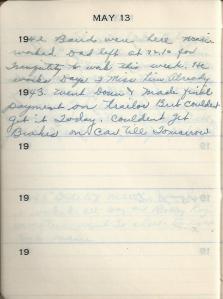 MAY 13
1942 David were here Marie
worked Dad left at for
to work this week. He
works Days I Miss him Already
1943. Went Down & made final
payment on Trailor But Couldent
get it Today. Couldent get
Brakes on Car till Tomorrow
19
19
19